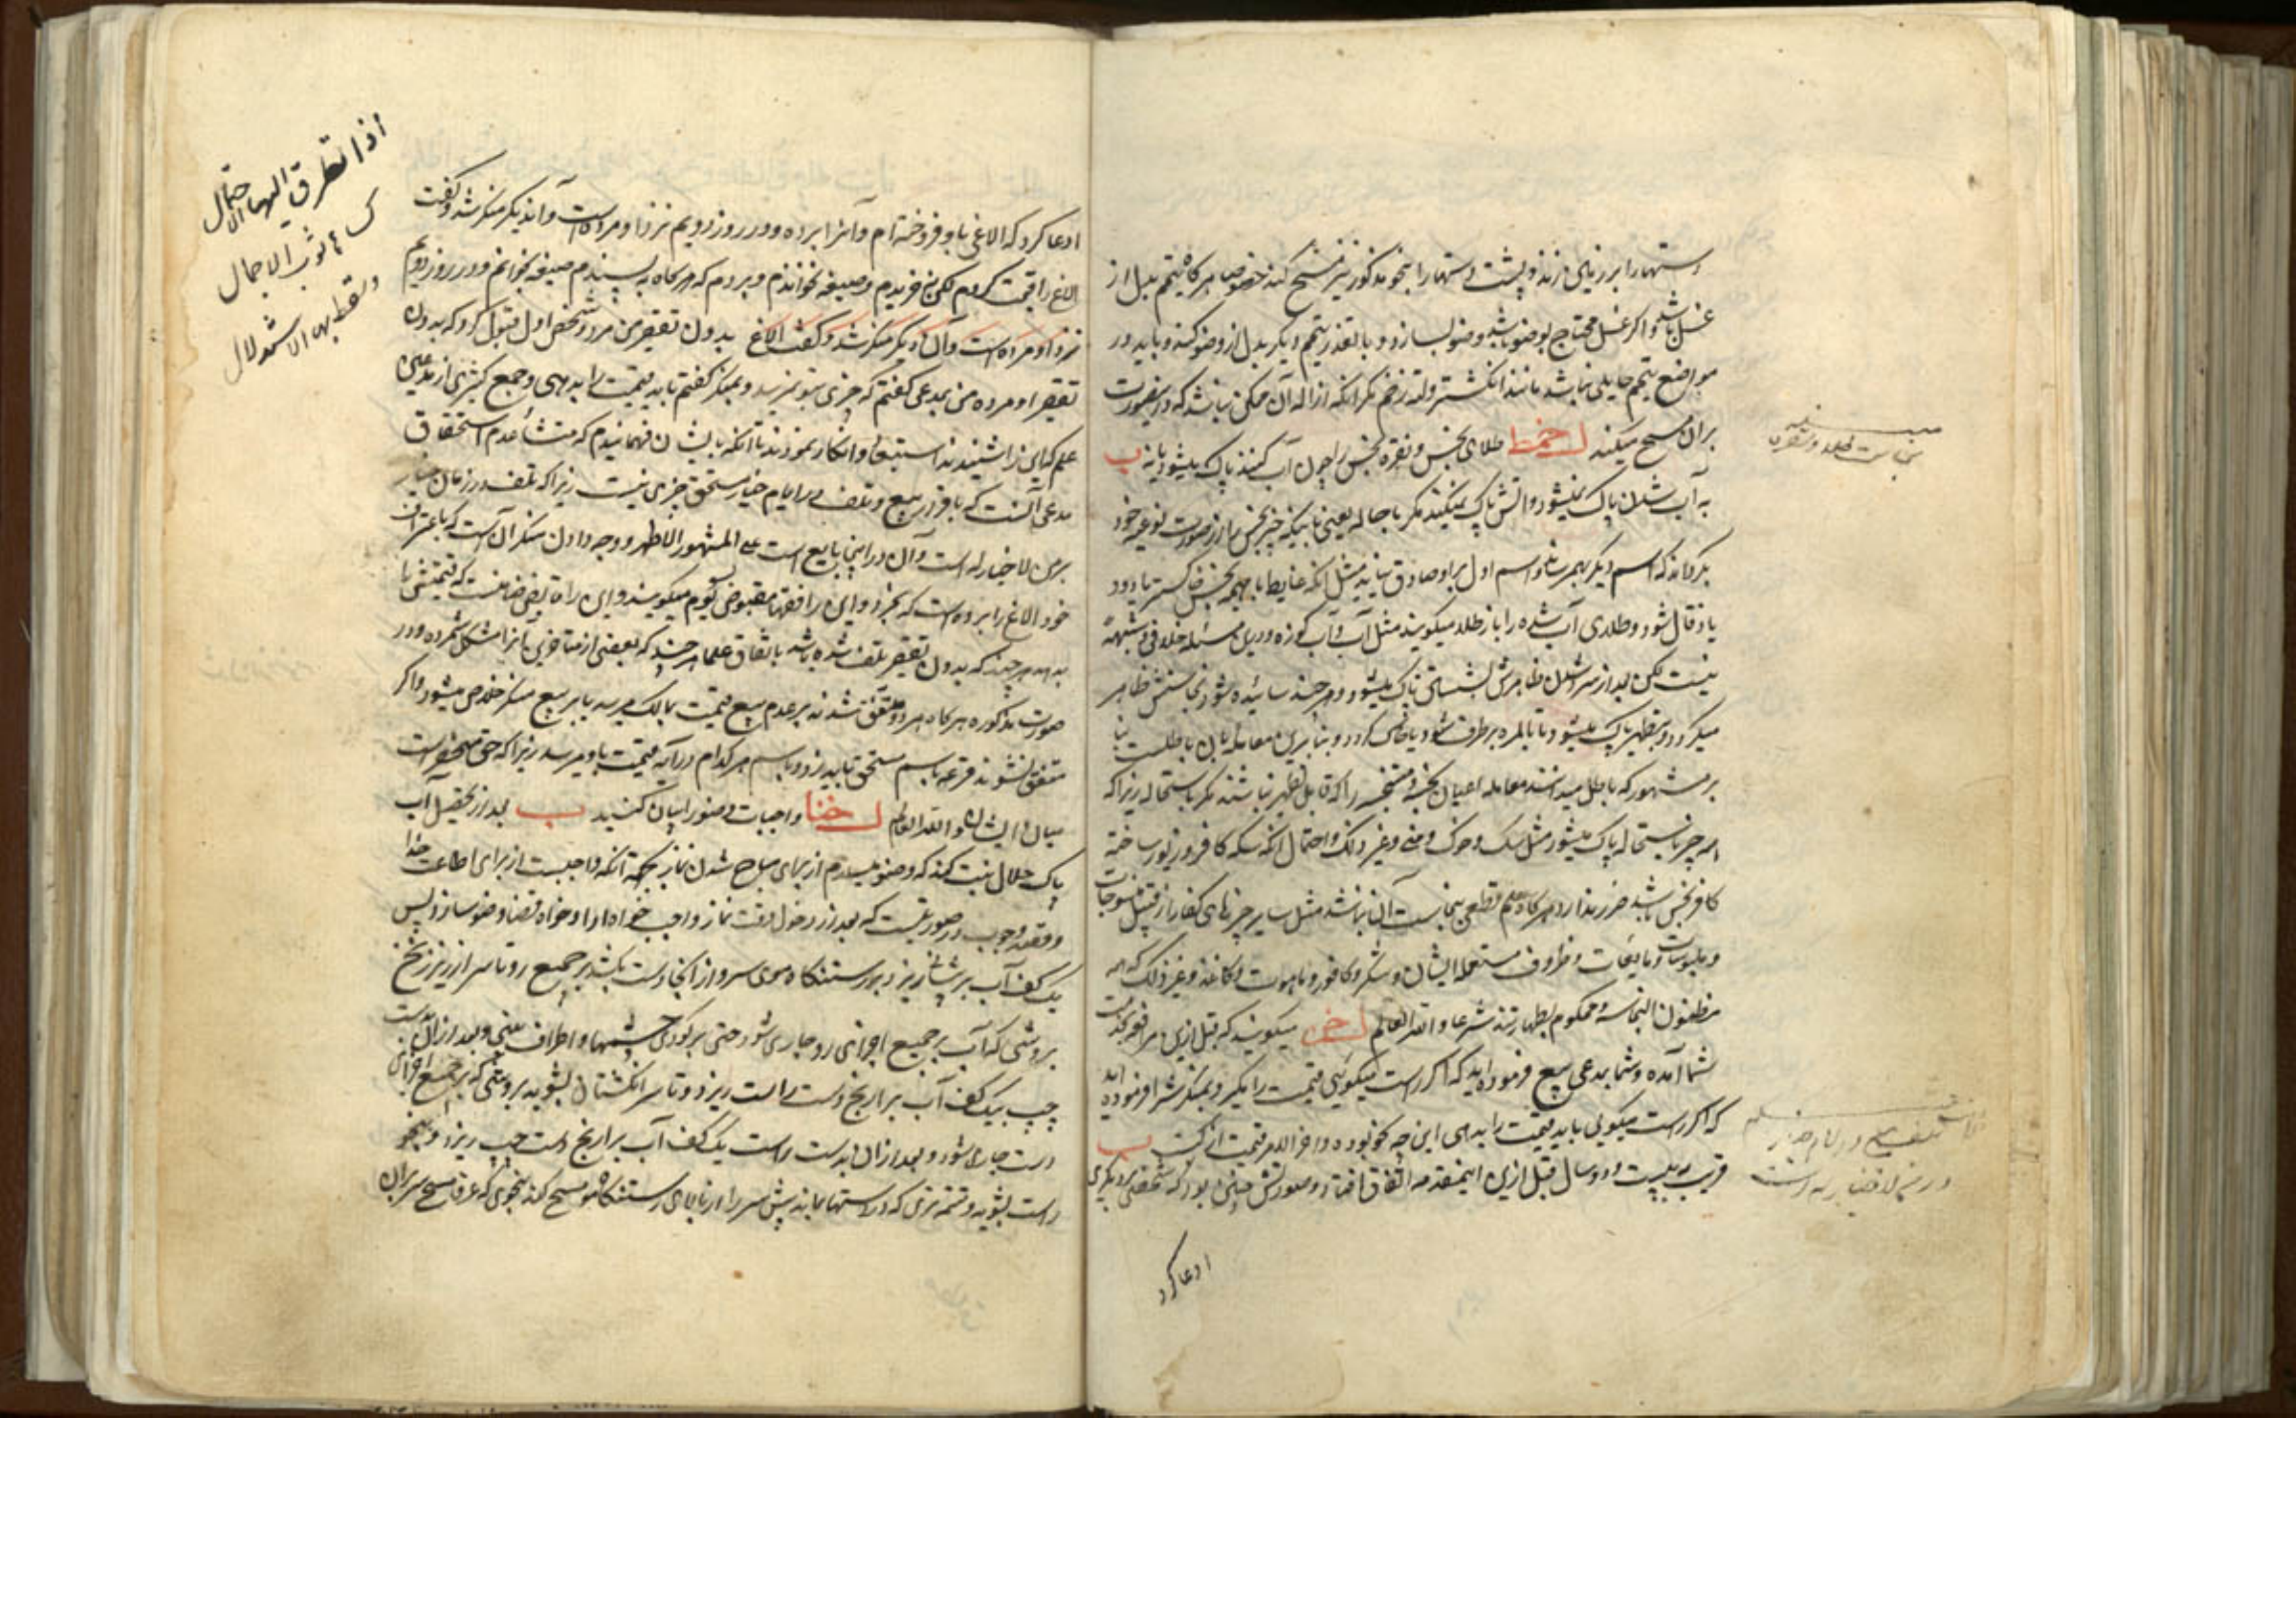 دستها را بر زمین زند و پشت دستها را بنحو مذکور نیز مسح کند خصوصا هر گاه تیمم بدل از
غسل باشد و اگر غسل محتاج بوضو باشد وضو بسازد و بالتعذر تیمم دیگر بدل از وضو کند و باید در
مواضع تیمم حایلی نباشد مانند انگشتر و لته زخم مگر آنکه ازاله آن ممکن نباشد که در اینصورت
بر آن مسح میکند طلای نجس و نقره نجس را چون آب کنند پاک میشود یا نه
به آب شدن پاک نمیشود و آتش پاک نمیکند مگر باحاله یعنی تا اینکه چیز نجس را از صورت نوعیه خود
بگرداند که اسم دیگر بهم رساند و اسم اول بر او صادق نیاید مثل آنکه غایط یا هیمه نجس خاکستر یا دود
یا ذغال شود و طلای آب شده را باز طلا میگویند مثل آب و آب کوزه و در این مسئله خلافی و شبهه
نیست لکن بعد از سرد شدن ظاهرش بشستن پاک میشود و هر چند سائیده شود نجاستش ظاهر
میگردد و بتطهیر پاک میشود تا بالمره برطرف شود یا فانی گردد و بنابراین معامله بآن باطلست بنا
بر مشهور که باطل میدانند معامله اعیان نجسه و متنجسه را که قابل تطهیر نباشند مگر باستحاله زیرا که
همه چیز باستحاله پاک میشود مثل سگ و خوک و منی و غیر ذلک و احتمال آنکه سکه کافر و زیور ساخته
کافر نجس باشد ضرر ندارد هر گاه علم قطعی بنجاست آن نباشد مثل سایر چیزهای کفار از قبیل منسوجات
و ملبوسات و مایعات و ظروف مستعمله ایشان و شکر و کافور و ماهوت و کاغذ و غیر ذلک که همه
مظنون النجاسة و محکوم بطهارتند شرعا و الله العالم میگویند که قبل ازین مرافعه بخدمت
شما آمده و شما بمدعی بیع فرموده اید که اگر راست میگوئی قیمت را بگیر و بمنکر شرا فرموده اید
که اگر راست میگوئی باید قیمت را بدهی این چه گونه بوده و آخر الامر قیمت از کیست
قریب به بیست و دو سال قبل ازین این مقدمه اتفاق افتاد و صورتش چنین بود که شخصی بر دیگری
ادعا کرد
نجاست طلا و نقره
ادعا کرد که الاغی باو فروخته ام و آنرا برده و در روز دویم نزد او مرده است و آن دیگر منکر شد و گفت
الاغ را قیمت کردم لکن نخریدم و صیغه نخواندم و بردم که هر گاه به پسندم صیغه بخوانم و در روز دویم
نزد او مرده است و آن دیگر منکر شد و گفت الاغ بدون تقصیر من مرد و شخص اول قبول کرد که بدون
تقصیر او مرده من بمدعی گفتم که چیزی بتو نمیرسد و بمنکر گفتم باید قیمت را بدهی و جمع کثیری از مدعیان
علم که این را شنیدند استبعاد و انکار نمودند تا آنکه بایشان فهمانیدم که منشأ عدم استحقاق
مدعی آنست که باقرار ببیع و تلف در ایام خیار مستحق چیزی نیست زیرا که تلف در زمان خیار
بر من لا خیار له است و آن در اینجا بایع است علی المشهور الاظهر و وجه دادن منکر آن است که باعتراف
خود الاغ را برده است که بخرد و این را فقها مقبوض بسوم میگویند و این راه قابض ضامنست که قیمتش را
بدهد هر چند که بدون تقصیر تلف شده باشد باتفاق علما هر چند که بعضی از متاخرین آنرا مشکل شمرده و در
صورت مذکوره هر گاه هر دو متفق شدند بر عدم بیع قیمت بمالک میرسد یا بر بیع منکر خلاص میشود و اگر
متفق نشوند قرعه باسم مستحق باید زد و باسم هر کدام در آید قیمت باو میرسد زیرا که حق منحصر است
میان ایشان و الله العالم واجبات وضو را بیان کنید بعد از تحصیل آب
پاک حلال نیت کند که وضو میسازم از برای مباح شدن نماز بجهة آنکه واجبست از برای اطاعت خدا
و قصد وجوب در صورتیست که بعد از دخول وقت نماز واجب خواه ادا و خواه قضا وضو سازد پس
یک کف آب بر پیشانی ریزد بر رستنگاه موی سر و از آنجا دست بکشد بر جمیع رو تا سر از زیر زنخ
بروشی که آب بر جمیع اجزای رو جاری شود حتی بر گودی چشمها و اطراف بینی و بعد از آن بدست
چپ یک کف آب بر ارنج دست راست ریزد و تا سر انگشتان بشوید بروشی که بر جمیع اجزای
دست جاری شود و بعد از آن بدست راست یک کف آب بر ارنج دست چپ ریزد و بنحو
راست بشوید و تتمه تری که در دستها بماند پیش سر را از بالای رستنگاه مو مسح کند بنحوی که عرفا مسح سر بر آن
اذا تطرق الیها الاحتمال
کساء ثوب الاجمال
و سقط بها الاستدلال